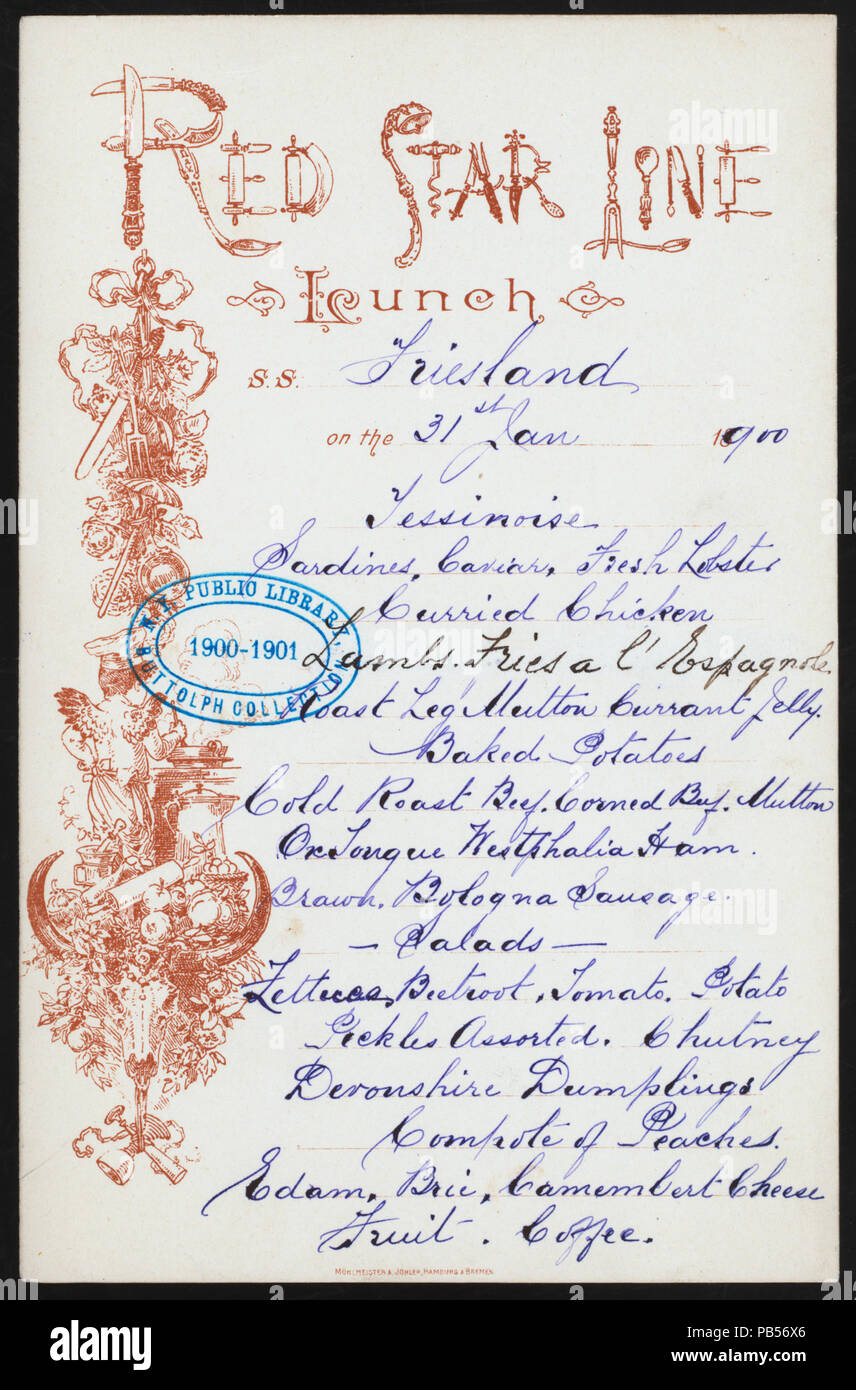 RED STAR LINE
Lunch
S.S. Friesland
on the 31st Jan 1900
Tessinoise
Sardines, Caviar, Fresh Lobster
Curried Chicken
Lambs. Fries a l'Espagnole
Roast Leg Mutton Currant Jelly.
Baked Potatoes
Cold Roast Beef. Corned Beef. Mutton
Ox Tongue Westphalia Ham.
Brawn. Bologna Sausage.
— Salads —
Lettuces, Beetroot, Tomato. Potato
Peckles Assorted. Chutney
Devonshire Dumplings
Compote of Peaches.
Edam, Brie, Camembert Cheese
Fruit. Coffee.
N.Y. PUBLIC LIBRARY,
1900-1901
BUTTOLPH COLLECTION
MÜHLMEISTER & JOHLER, HAMBURG & BREMEN.
alamy
alamy
alamy
a
a
a
a
alamy
Image ID: PB56X6
www.alamy.com